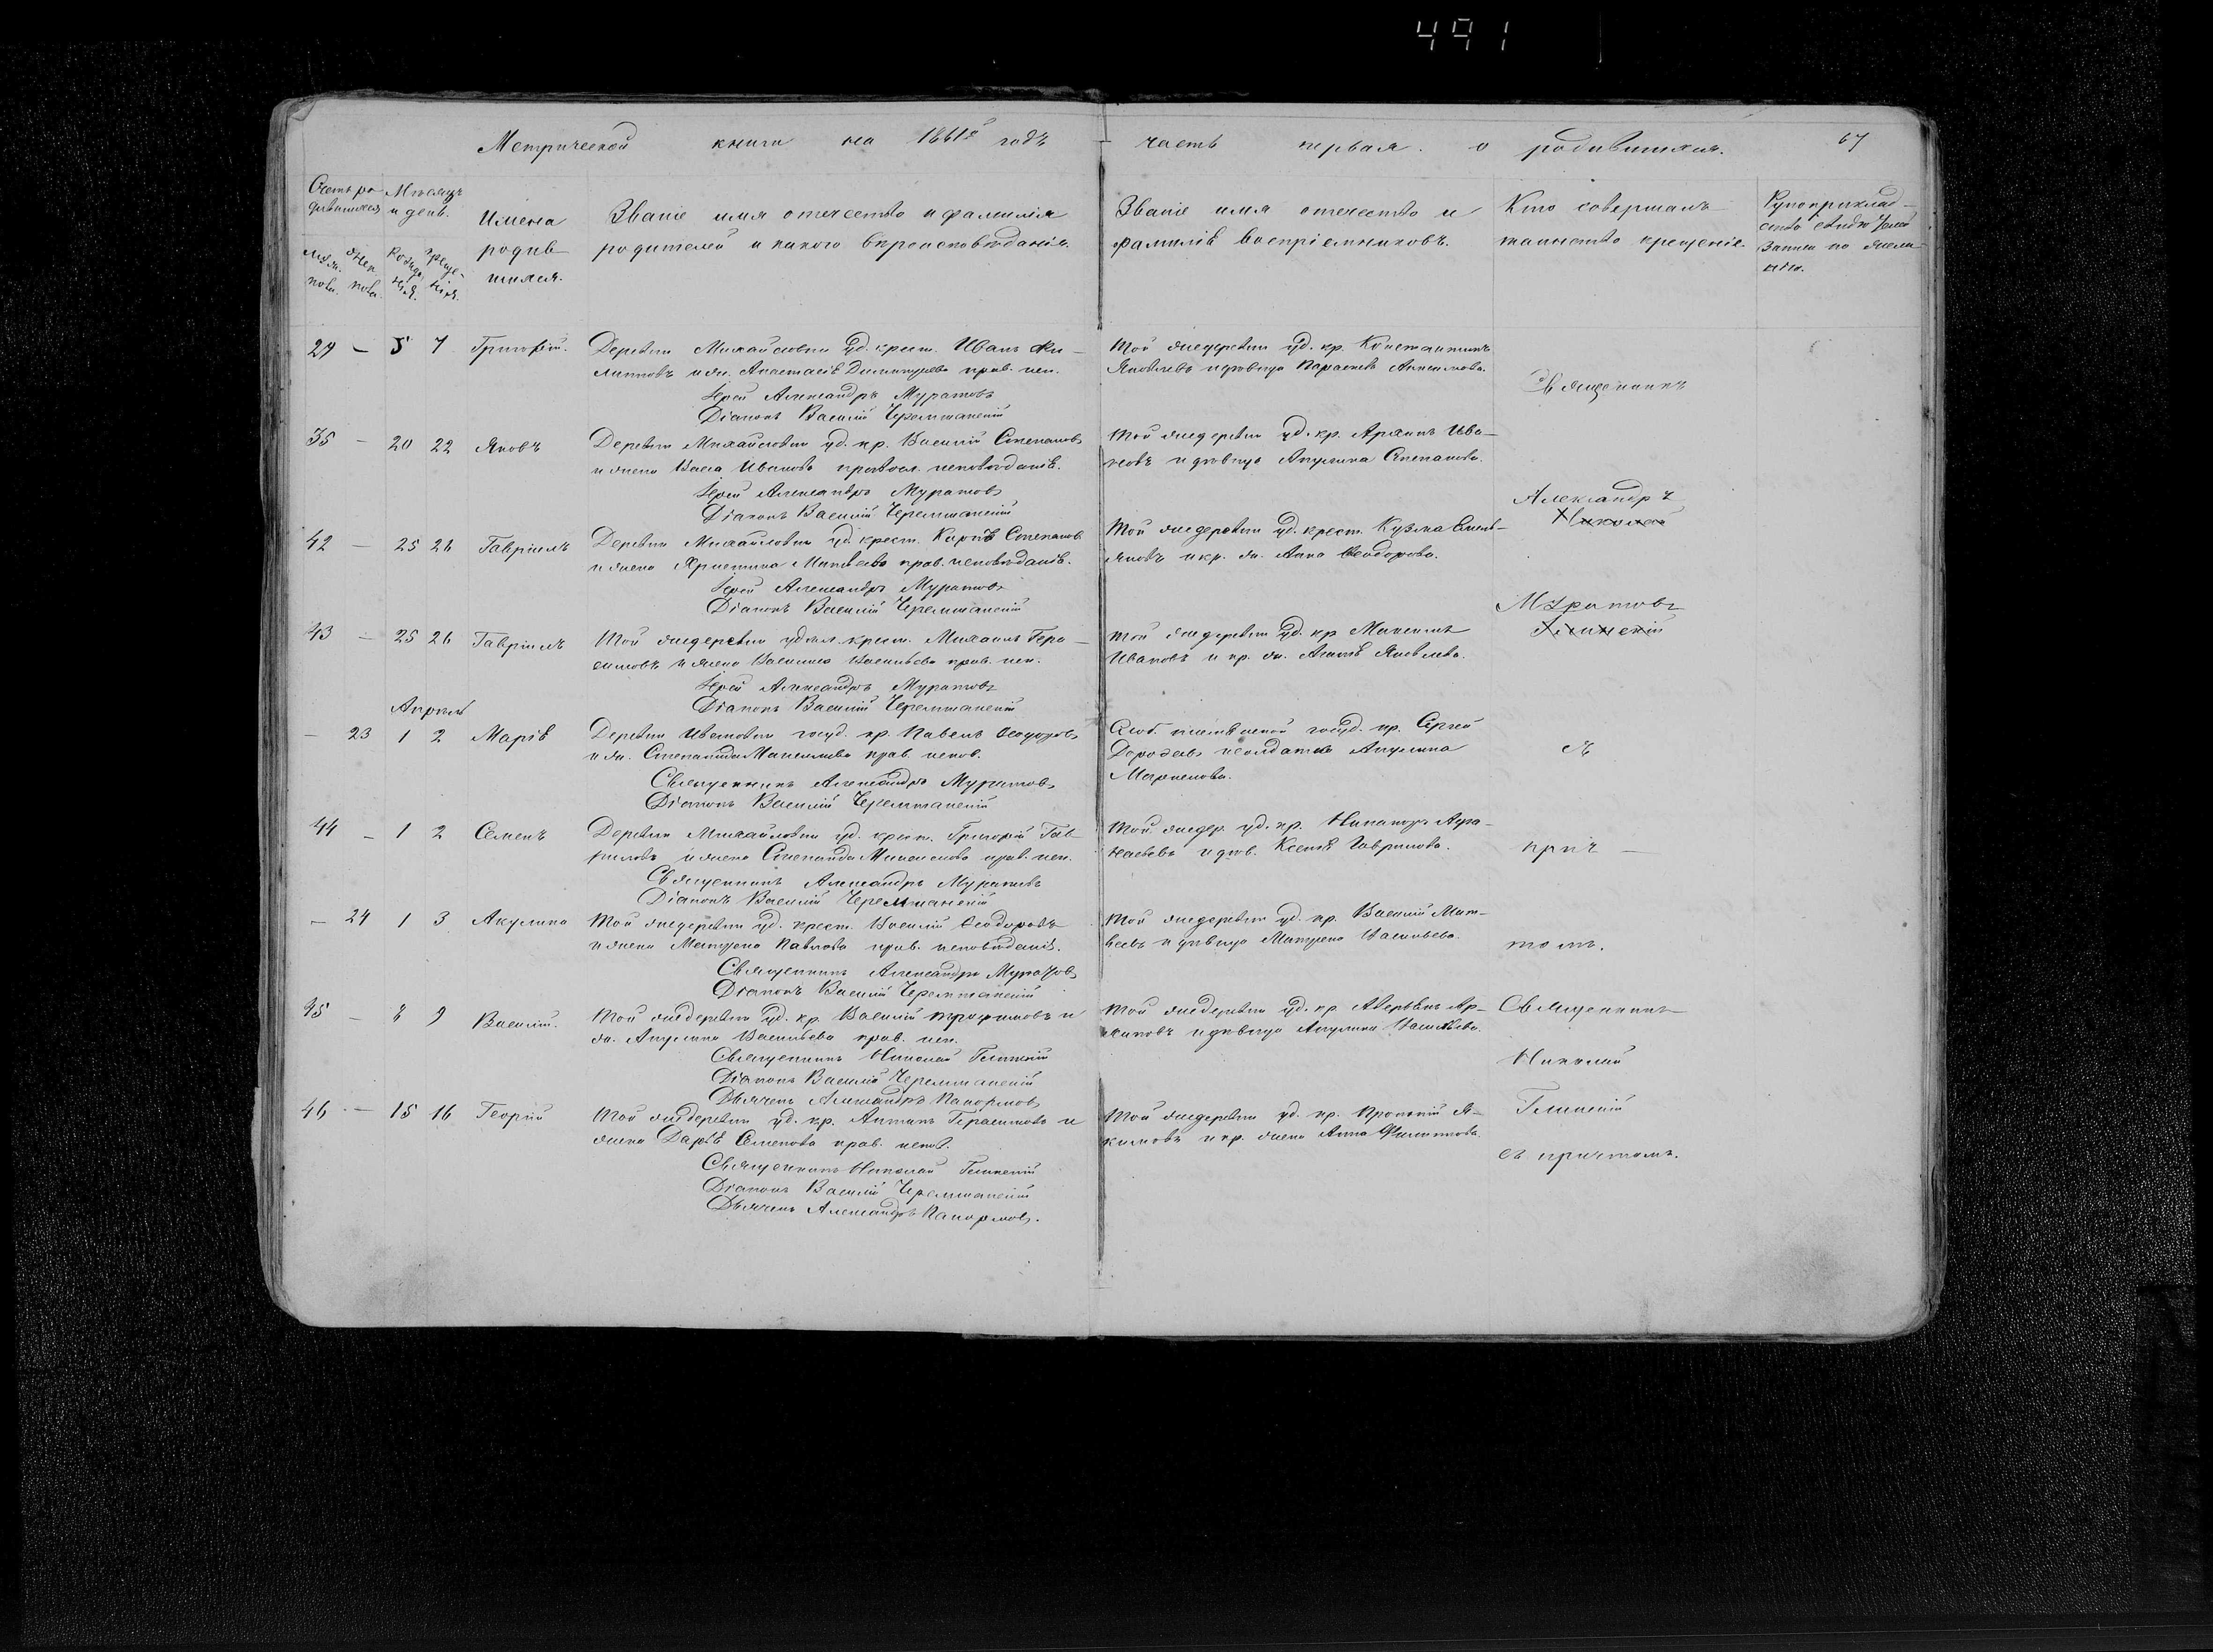 491
Метрической книги на 1861й годъ часть первая о родившихся. 67
Счетъ ро-
дившихся
Мѣсяцъ
и день.
Имена
родив-
шихся.
Званіе имя отечество и фамилія
родителей и какого вѣроисповѣданія.
Званіе имя отечество и
фамилія воспріемниковъ.
Кто совершалъ
таинство крещенія.
Рукоприклад-
ство свидѣтелей
записи по жела-
нію.
29 — 5 7 Григорій. Деревни Михайловки уд. крест. Иванъ Фи-
липповъ и ж. Анастасія Димитріева прав. исп.
Іерей Александръ Муратовъ
Діаконъ Василій Черемшанскій
Той же деревни уд. кр. Константинъ
Яковлевъ и дѣвица Параскева
Священникъ
35 — 20 22 Яковъ Деревни Михайловки уд. кр. Василій Степановъ
и жена Васса Иванова правосл. исповѣданія.
Іерей Александръ Муратовъ
Діаконъ Василій Черемшанскій
Той же деревни уд. кр. Ива-
новъ и дѣвица Акулина Степанова.
Александръ
Николай
42 — 25 26 Гавріилъ Деревни Михайловки уд. крест. Степановъ
и жена Христина Матвеева прав. исповѣданія.
Іерей Александръ Муратовъ
Діаконъ Василій Черемшанскій
Той же деревни уд. крест. Кузма Емель-
яновъ и кр. ж. Анна Ѳеодорова.
Муратовъ
Глинскій
43 — 25 26 Гавріилъ Той же деревни удѣл. крест. Михаилъ Гера-
симовъ и жена Василиса Васильева прав. исп.
Іерей Александръ Муратовъ
Діаконъ Василій Черемшанскій
Той же деревни уд. кр. Максимъ
Ивановъ и кр. ж. Яковлева.
Апрѣль
— 23 1 2 Марія Деревни госуд. кр. Павелъ Ѳеодоровъ
и ж. Степанида Максимова прав. испов.
Священникъ Александръ Муратовъ
Діаконъ Василій Черемшанскій
госуд. кр. Сергей
и солдатка Акулина
съ
44 — 1 2 Семенъ Деревни Михайловки уд. крест. Григорій Гав-
риловъ и жена Степанида прав. исп.
Священникъ Александръ Муратовъ
Діаконъ Василій Черемшанскій
Той же дер. уд. кр. Никаноръ Аѳа-
насьевъ и дѣв. Ксенія Гаврилова.
прич—
— 24 1 3 Акулина Той же деревни уд. крест. Василій Ѳеодоровъ
и жена Матрена Павлова прав. исповѣданія.
Священникъ Александръ Муратовъ
Діаконъ Василій Черемшанскій
Той же деревни уд. кр. Василій Мат-
веевъ и дѣвица Матрена Васильева.
томъ.
45 — 8 9 Василій. Той же деревни уд. кр. Василій Трофимовъ и
ж. Акулина Васильева прав. исп.
Священникъ Николай Глинскій
Діаконъ Василій Черемшанскій
Дьячекъ Александръ Панормовъ
Той же деревни уд. кр. Аверьянъ Ар-
хиповъ и дѣвица Акулина Васильева.
Священникъ
Николай
46 — 15 16 Георгій Той же деревни уд. кр. Антипъ Герасимовъ и
жена Дарія Семенова прав. испов.
Священникъ Николай Глинскій
Діаконъ Василій Черемшанскій
Дьячекъ Александръ Панормовъ.
Той же деревни уд. кр. Прокопій Я-
кимовъ и кр. жена Анна Филиппова.
Глинскій
съ причтомъ.